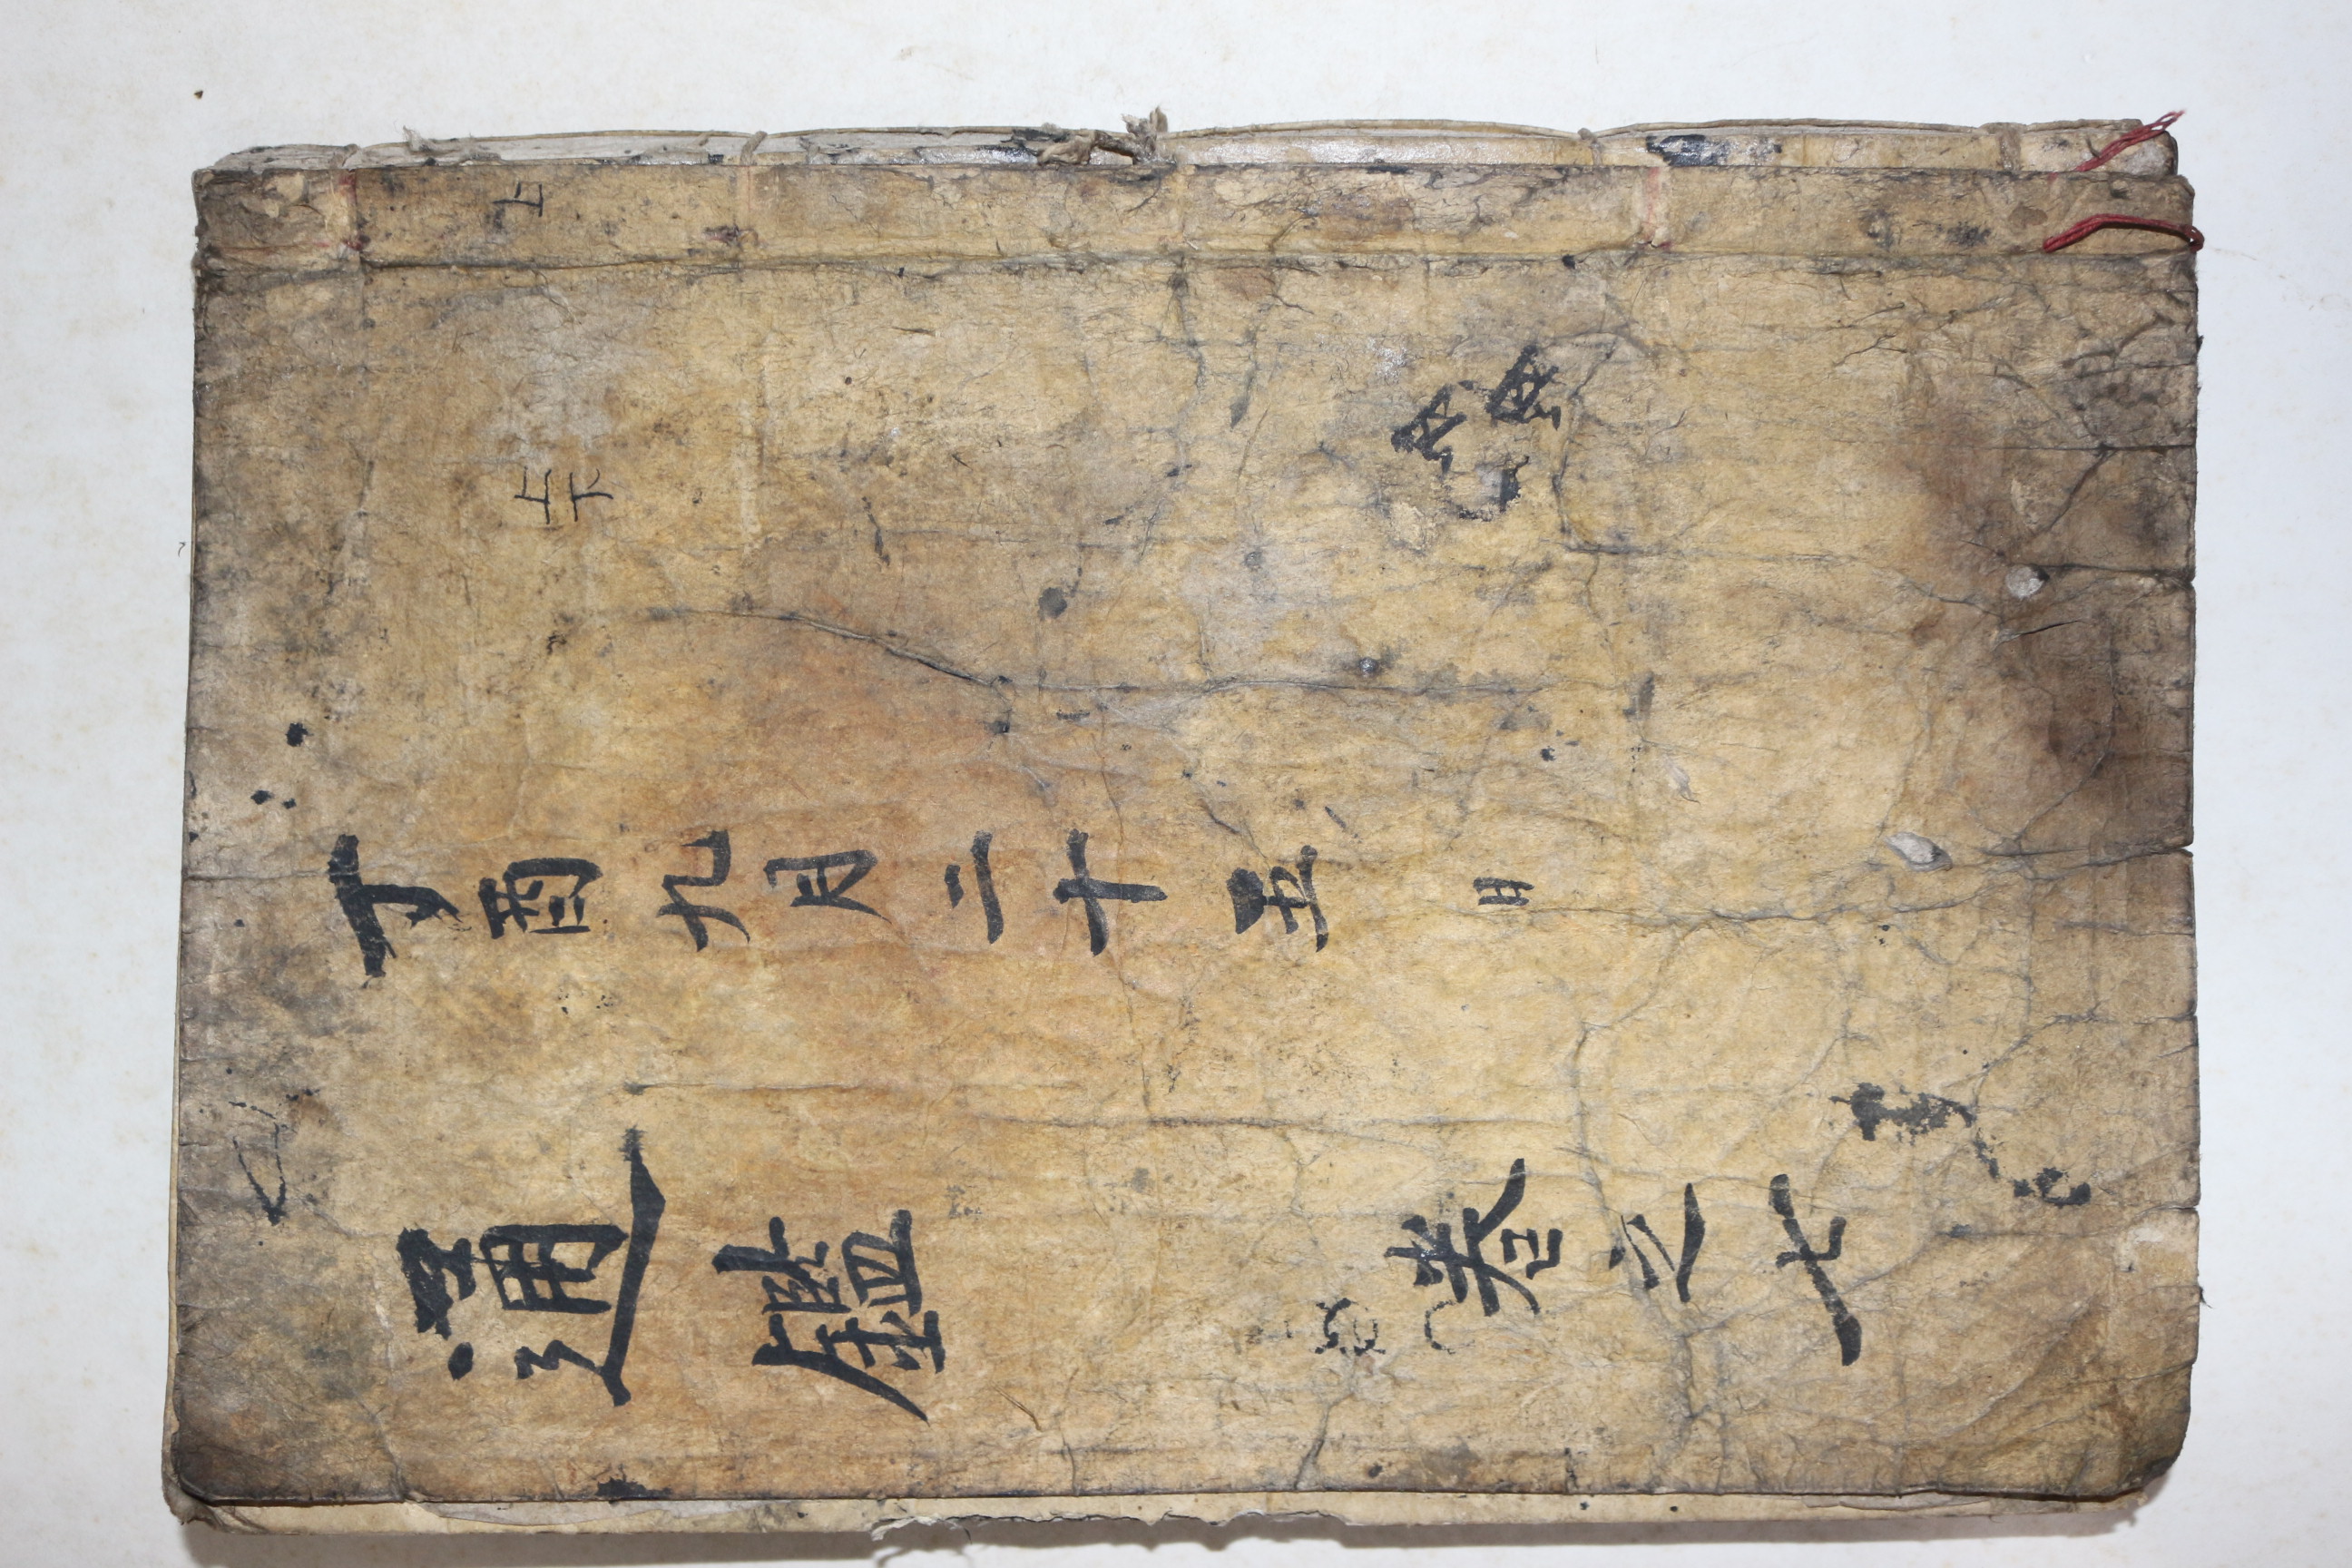 通鑑 卷之七
丁酉九月二十五日
上下
上